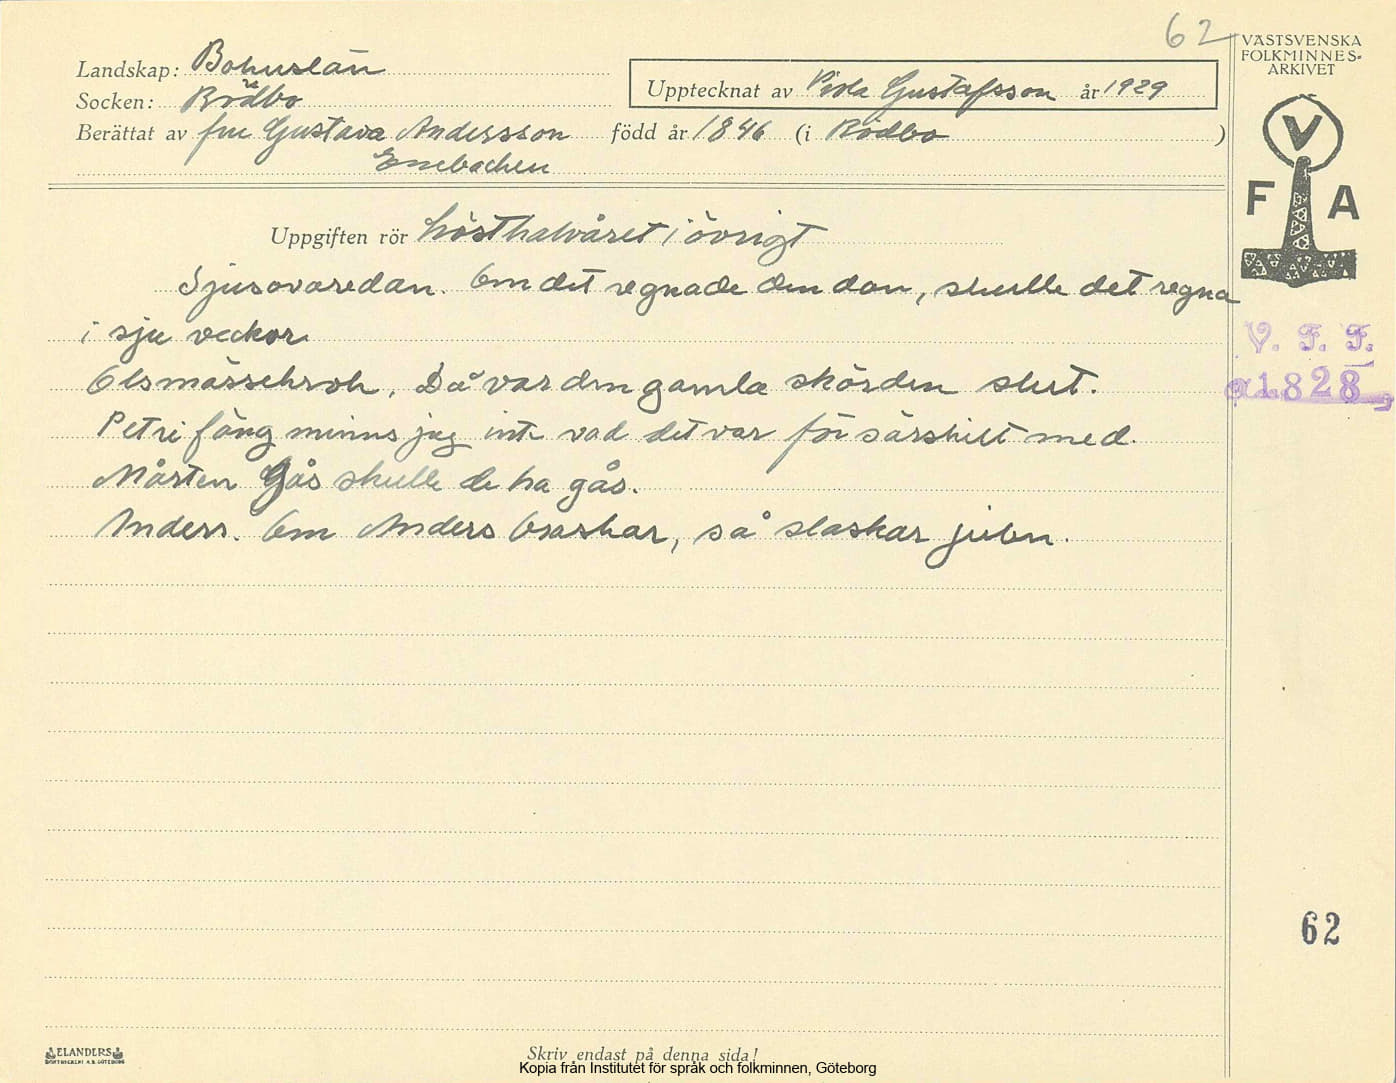 62
VÄSTSVENSKA
FOLKMINNES-
ARKIVET
Landskap: Bohuslän
Socken: Rödbo
Upptecknat av Viola Gustafsson år 1929
Berättat av fru Gustava Andersson född år 1846 (i Rödbo )
Enebacken
V
F A
Uppgiften rör hösthalvåret i övrigt
Sjusovaredan. Om det regnade den dan, skulle det regna
i sju veckor
V. F. F.
1828
Olsmässekrok. Då var den gamla skörden slut.
Petri fång minns jag inte vad det var för särskilt med.
Mårten Gås skulle de ha gås.
Anders. Om Anders braskar, så slaskar julen.
62
ELANDERS
BOKTRYCKERI A.B. GÖTEBORG
Skriv endast på denna sida!
Kopia från Institutet för språk och folkminnen, Göteborg